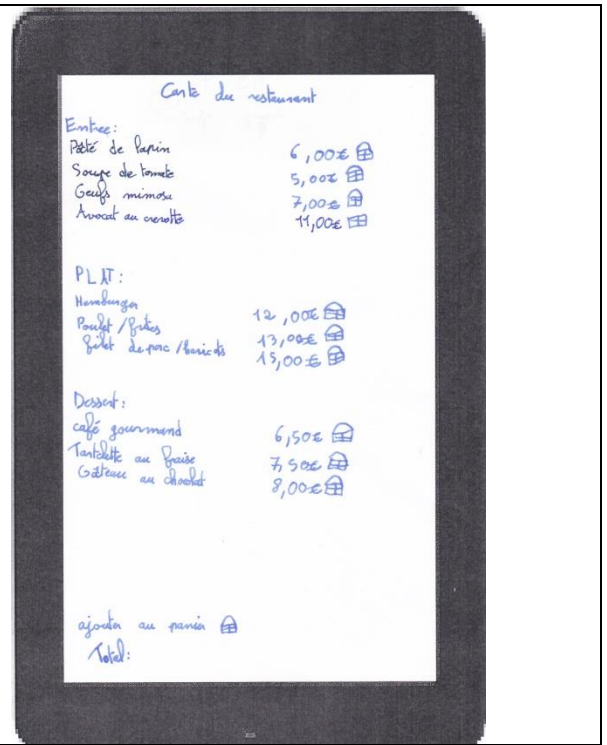 Carte du restaurant
Entree:
Pâté de lapin 6,00€
Soupe de tomate 5,00€
Oeufs mimosa 7,00€
Avocat au crevette 11,00€
PLAT:
Hamburger 12,00€
Poulet/frites 13,00€
filet de porc/haricots 15,00€
Dessert:
café gourmand 6,50€
Tartelette au fraise 7,50€
Gâteau au chocolat 8,00€
ajouter au panier
Total: